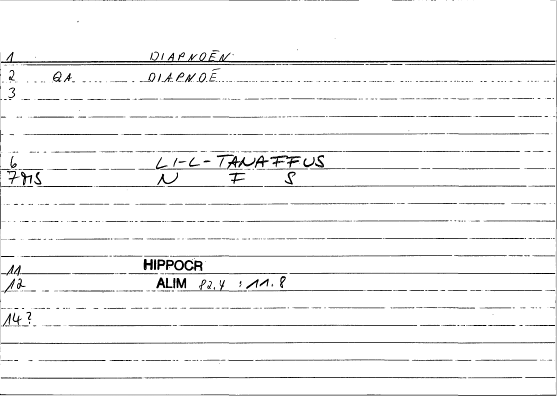 1 DIAPNOËN
2 QA DIAPNOË
3
6 LI-L-TANAFFUS
7 MS N F S
11 HIPPOCR
12 ALIM 82.4 : 11.8
14?